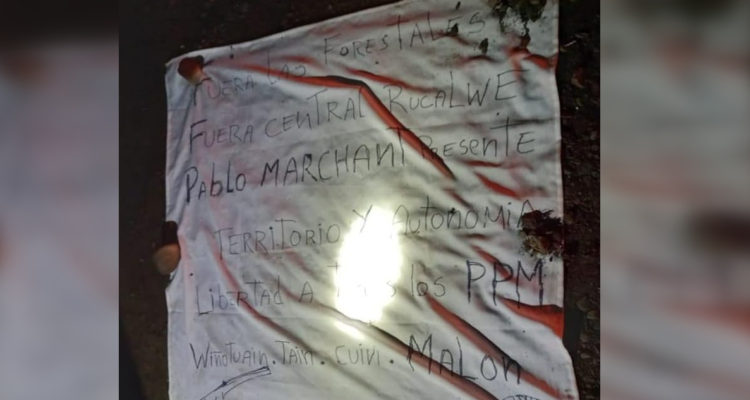 FUERA LAS FORESTALES
FUERA CENTRAL RUCALWE
PABLO MARCHANT PRESENTE
TERRITORIO Y AUTONOMIA
LIBERTAD A los PPM
WIÑOTUAIN. TAIN. CUIVI. MALON